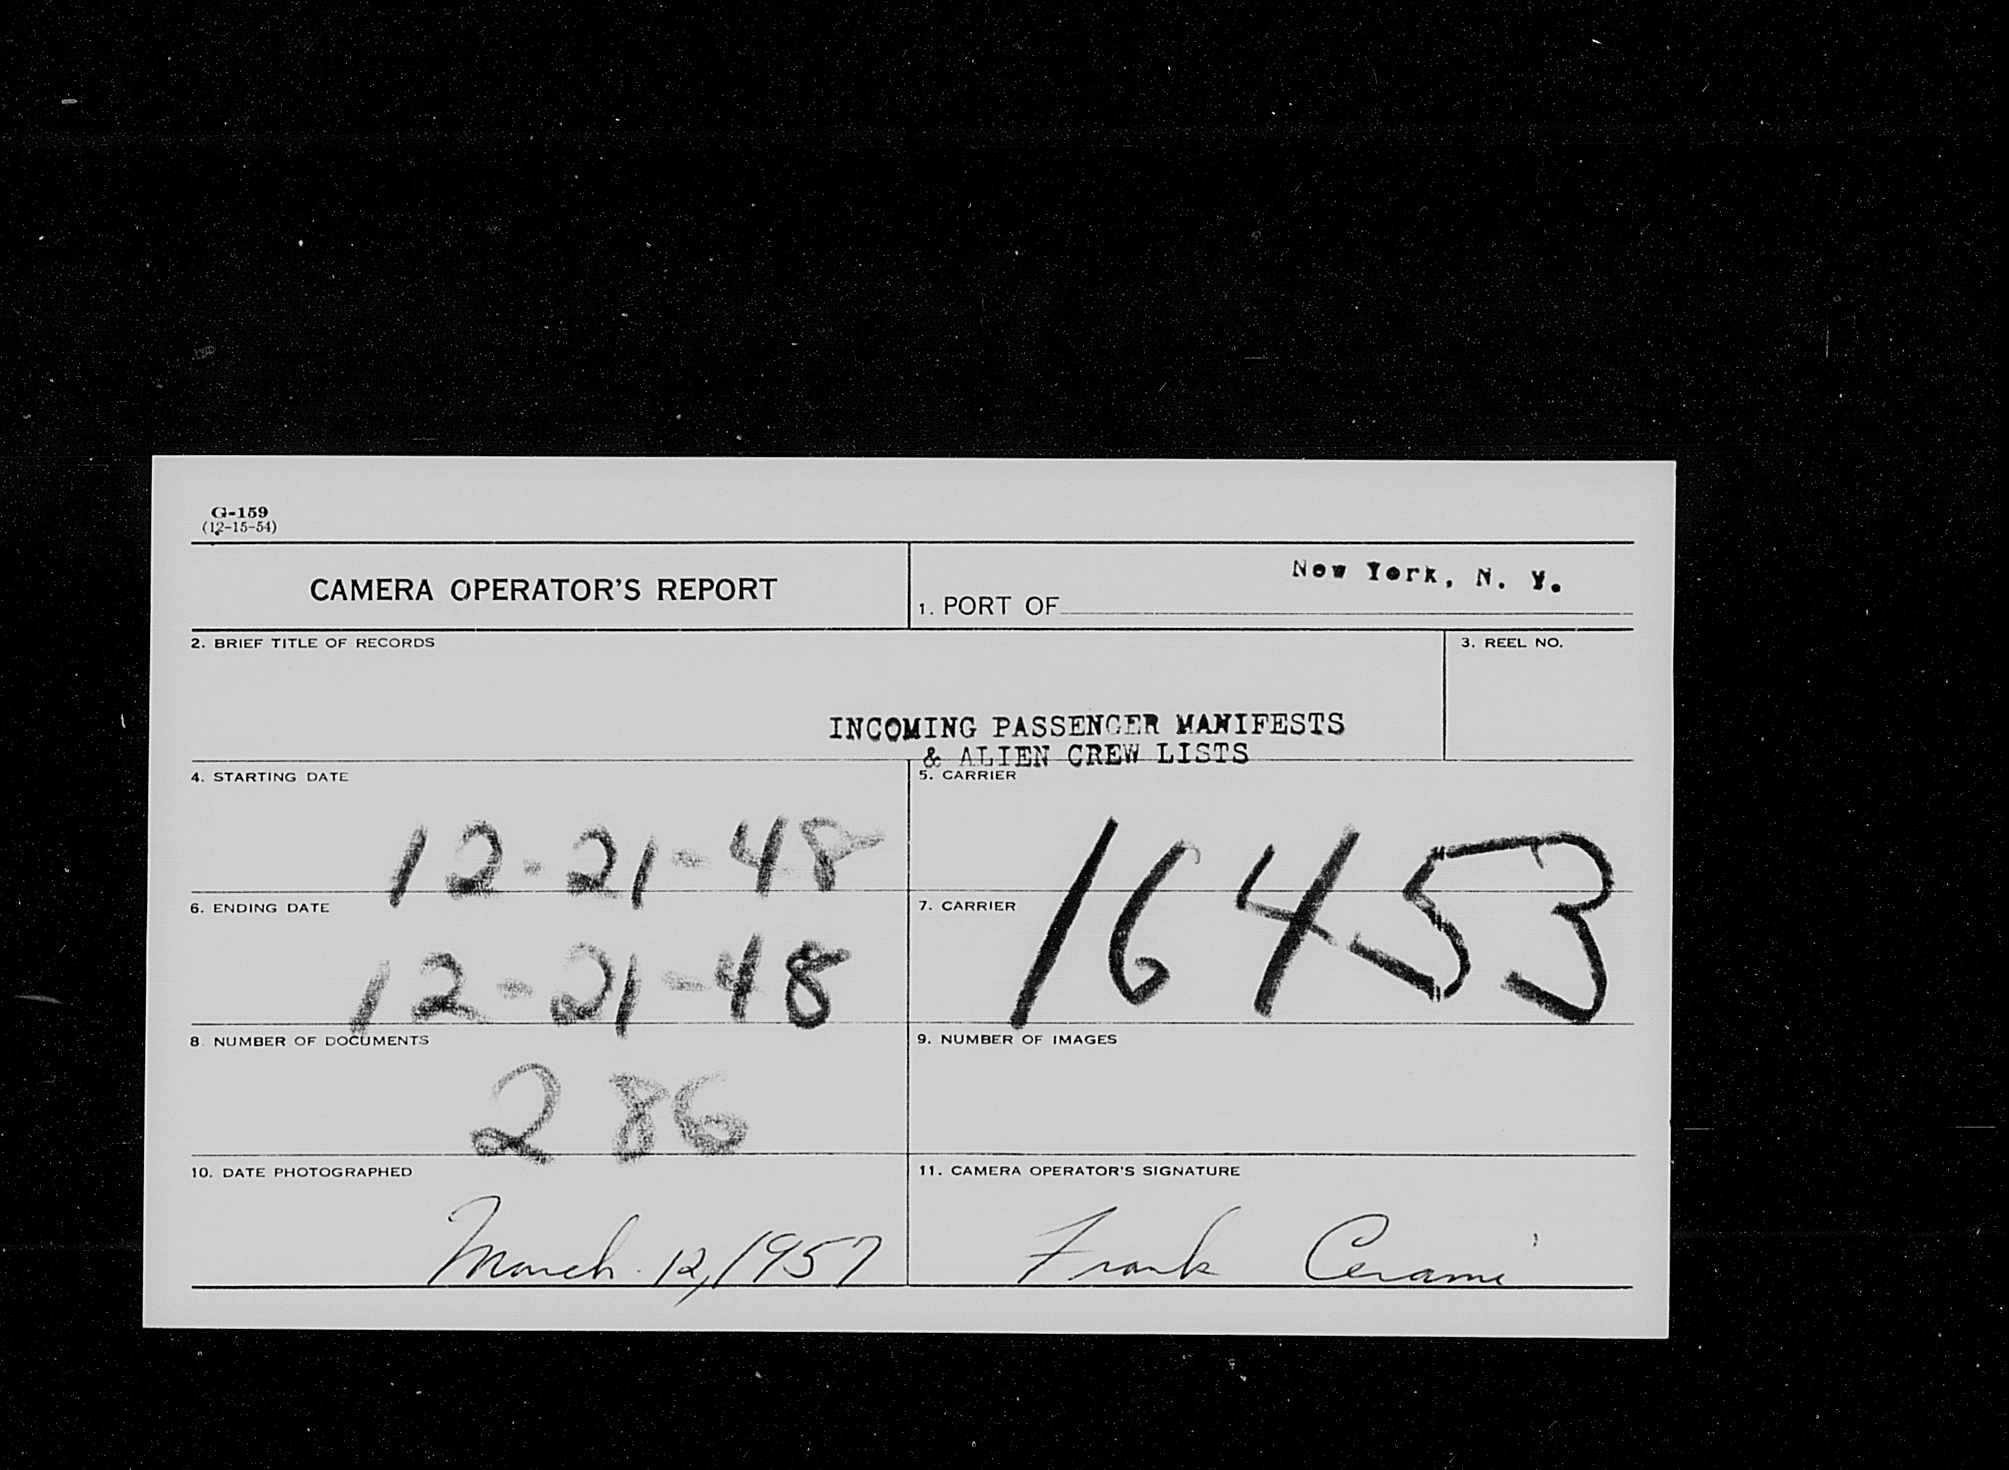 G-159
(12-15-54)
CAMERA OPERATOR'S REPORT
1. PORT OF New York, N. Y.
2. BRIEF TITLE OF RECORDS
3. REEL NO.
INCOMING PASSENGER MANIFESTS
& ALIEN CREW LISTS
4. STARTING DATE
12-21-48
5. CARRIER
16453
6. ENDING DATE
12-21-48
7. CARRIER
8. NUMBER OF DOCUMENTS
286
9. NUMBER OF IMAGES
10. DATE PHOTOGRAPHED
March 12, 1957
11. CAMERA OPERATOR'S SIGNATURE
Frank Cerami